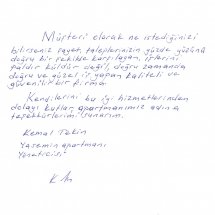 Müşteri olarak ne istediğinizi
bilirseniz şayet, taleplerinizin yüzde yüzünü
doğru bir şekilde karşılayan, işlerini
paldır küldür değil, doğru zamanda
doğru ve güzel iş yapan kaliteli ve
güvenilir bir firma.
Kendilerini bu iyi hizmetlerinden
dolayı kutlar, apartmanımız adına
teşekkürlerimi sunarım.
Kemal Tekin
Yasemin apartmanı
Yöneticisi